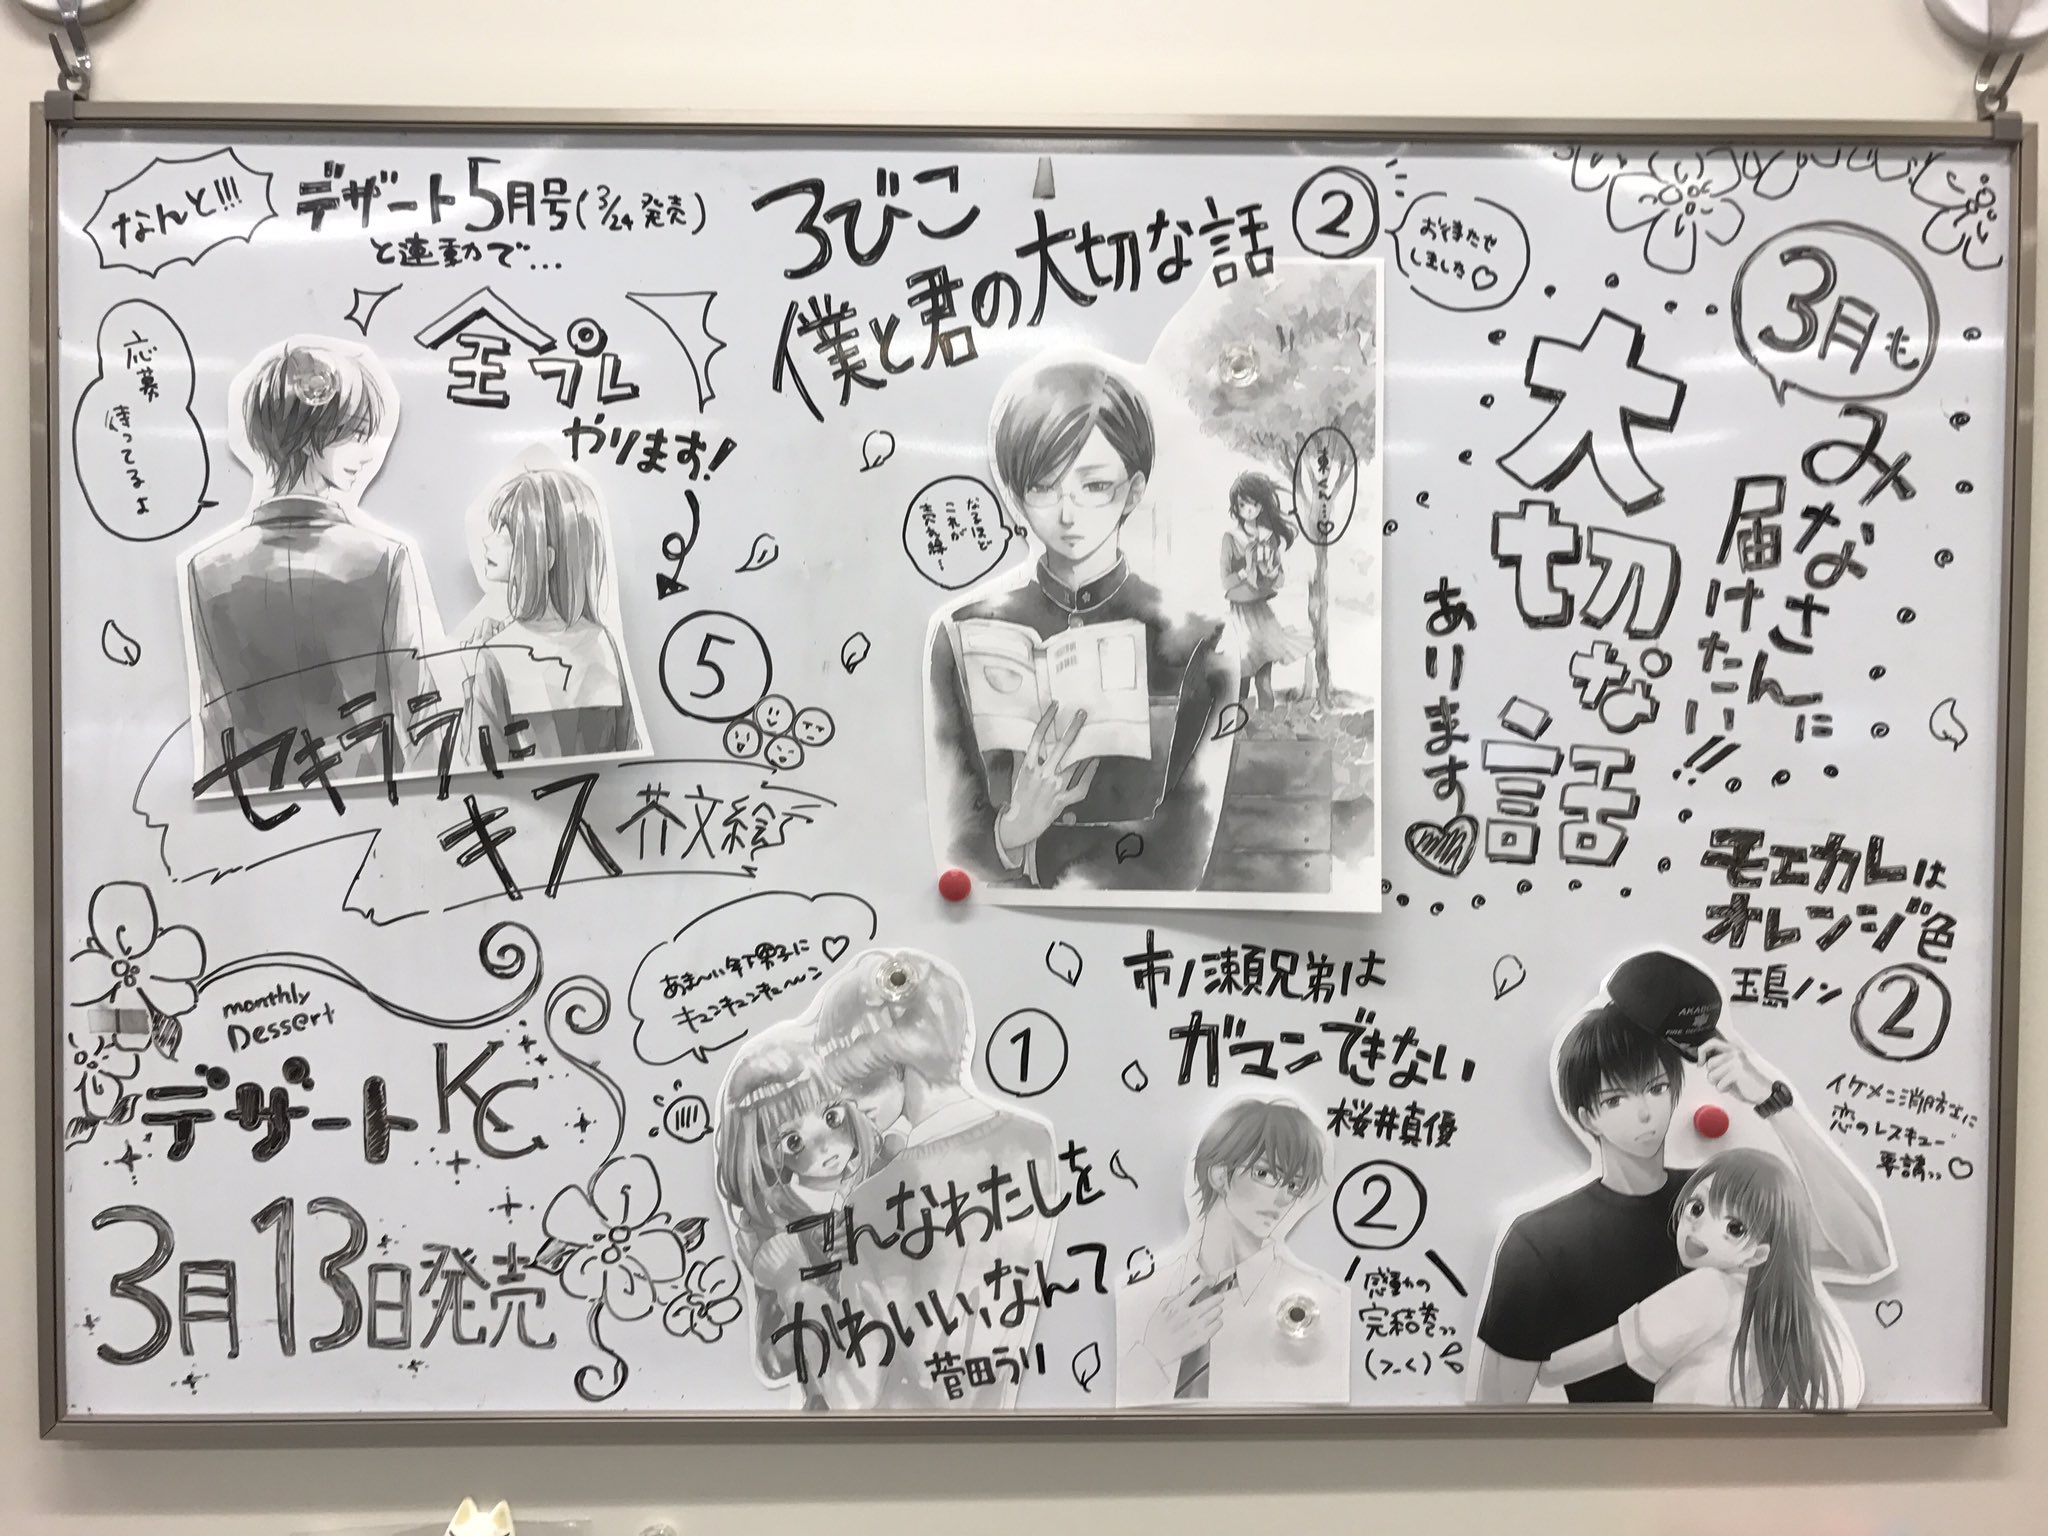 なんと!!!
デザート5月号(3/24発売)
と連動で…
全プレ
やります!
応募
待ってるよ
⑤
セキララに
キス
芥文絵
ろびこ
僕と君の大切な話
②
お待たせ
しました♡
なるほど
これが
東くん…♡
3月も
みなさんに
届けたい!!
大切な話
あります♥
monthly
Dessert
デザートKC
3月13日発売
あま〜い年下男子に
キュンキュンキュ〜ン♡
①
こんなわたしを
かわいい、なんて
菅田うり
市ノ瀬兄弟は
ガマンできない
桜井真優
②
感動の
完結巻
(>_<)
モエカレは
オレンジ色
玉島ノン
②
イケメン消防士に
恋のレスキュー
要請♡